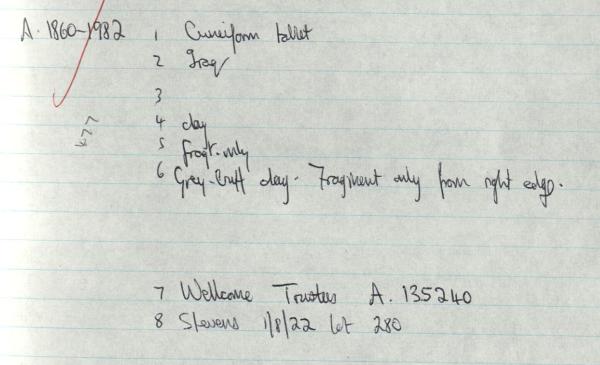 A. 1860-1982 1 Cuneiform tablet
2 Iraq
3
4 clay
5 Fragt. only
6 Grey-buff clay. Fragment only from right edge.
7 Wellcome Trustees A. 135240
8 Stevens 1/8/22 lot 280